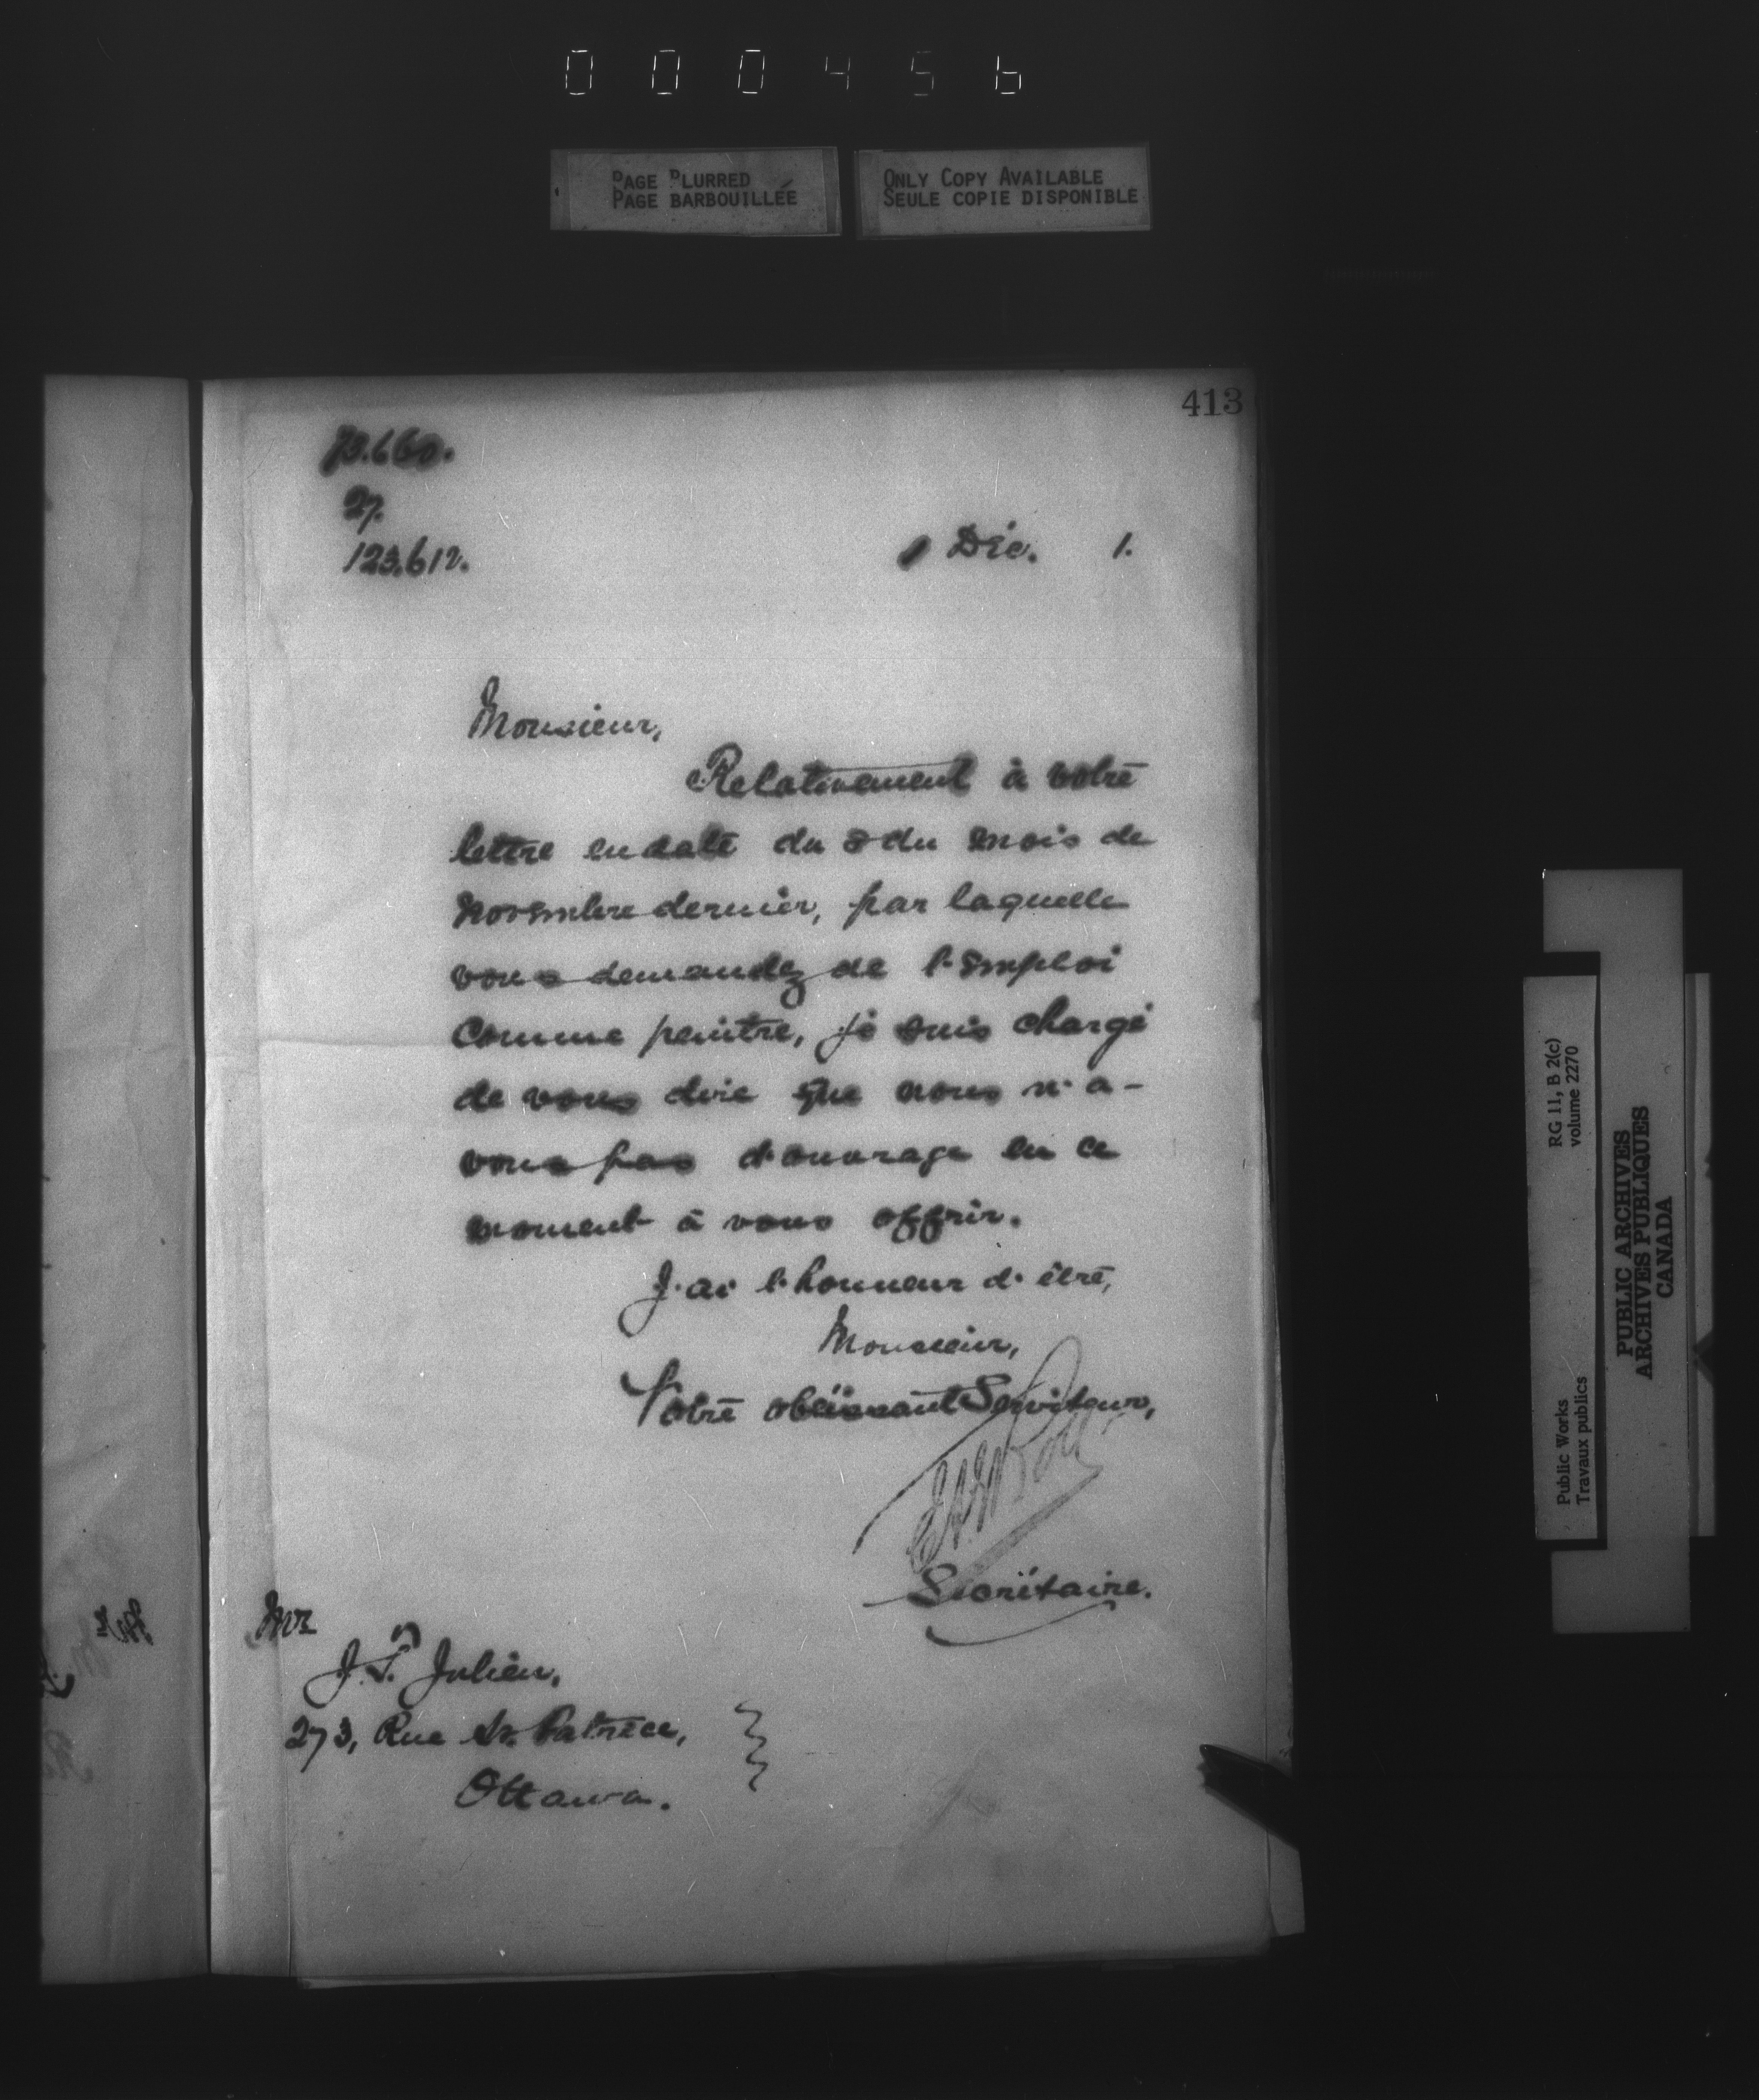 000456
PAGE BLURRED
PAGE BARBOUILLÉE
ONLY COPY AVAILABLE
SEULE COPIE DISPONIBLE
413
73.660.
27.
123.612.
1 Déc. 1.
Monsieur,
Relativement à votre
lettre en date du 8 du mois de
Novembre dernier, par laquelle
vous demandez de l'emploi
comme peintre, je suis chargé
de vous dire que nous n'a-
vons pas d'ouvrage en ce
moment à vous offrir.
J'ai l'honneur d'être,
Monsieur,
Votre obéissant Serviteur,
Secrétaire.
Mr
J. T. Julien,
273, Rue St. Patrice,
Ottawa.
RG 11, B 2(c)
volume 2270
Public Works
Travaux publics
PUBLIC ARCHIVES
ARCHIVES PUBLIQUES
CANADA